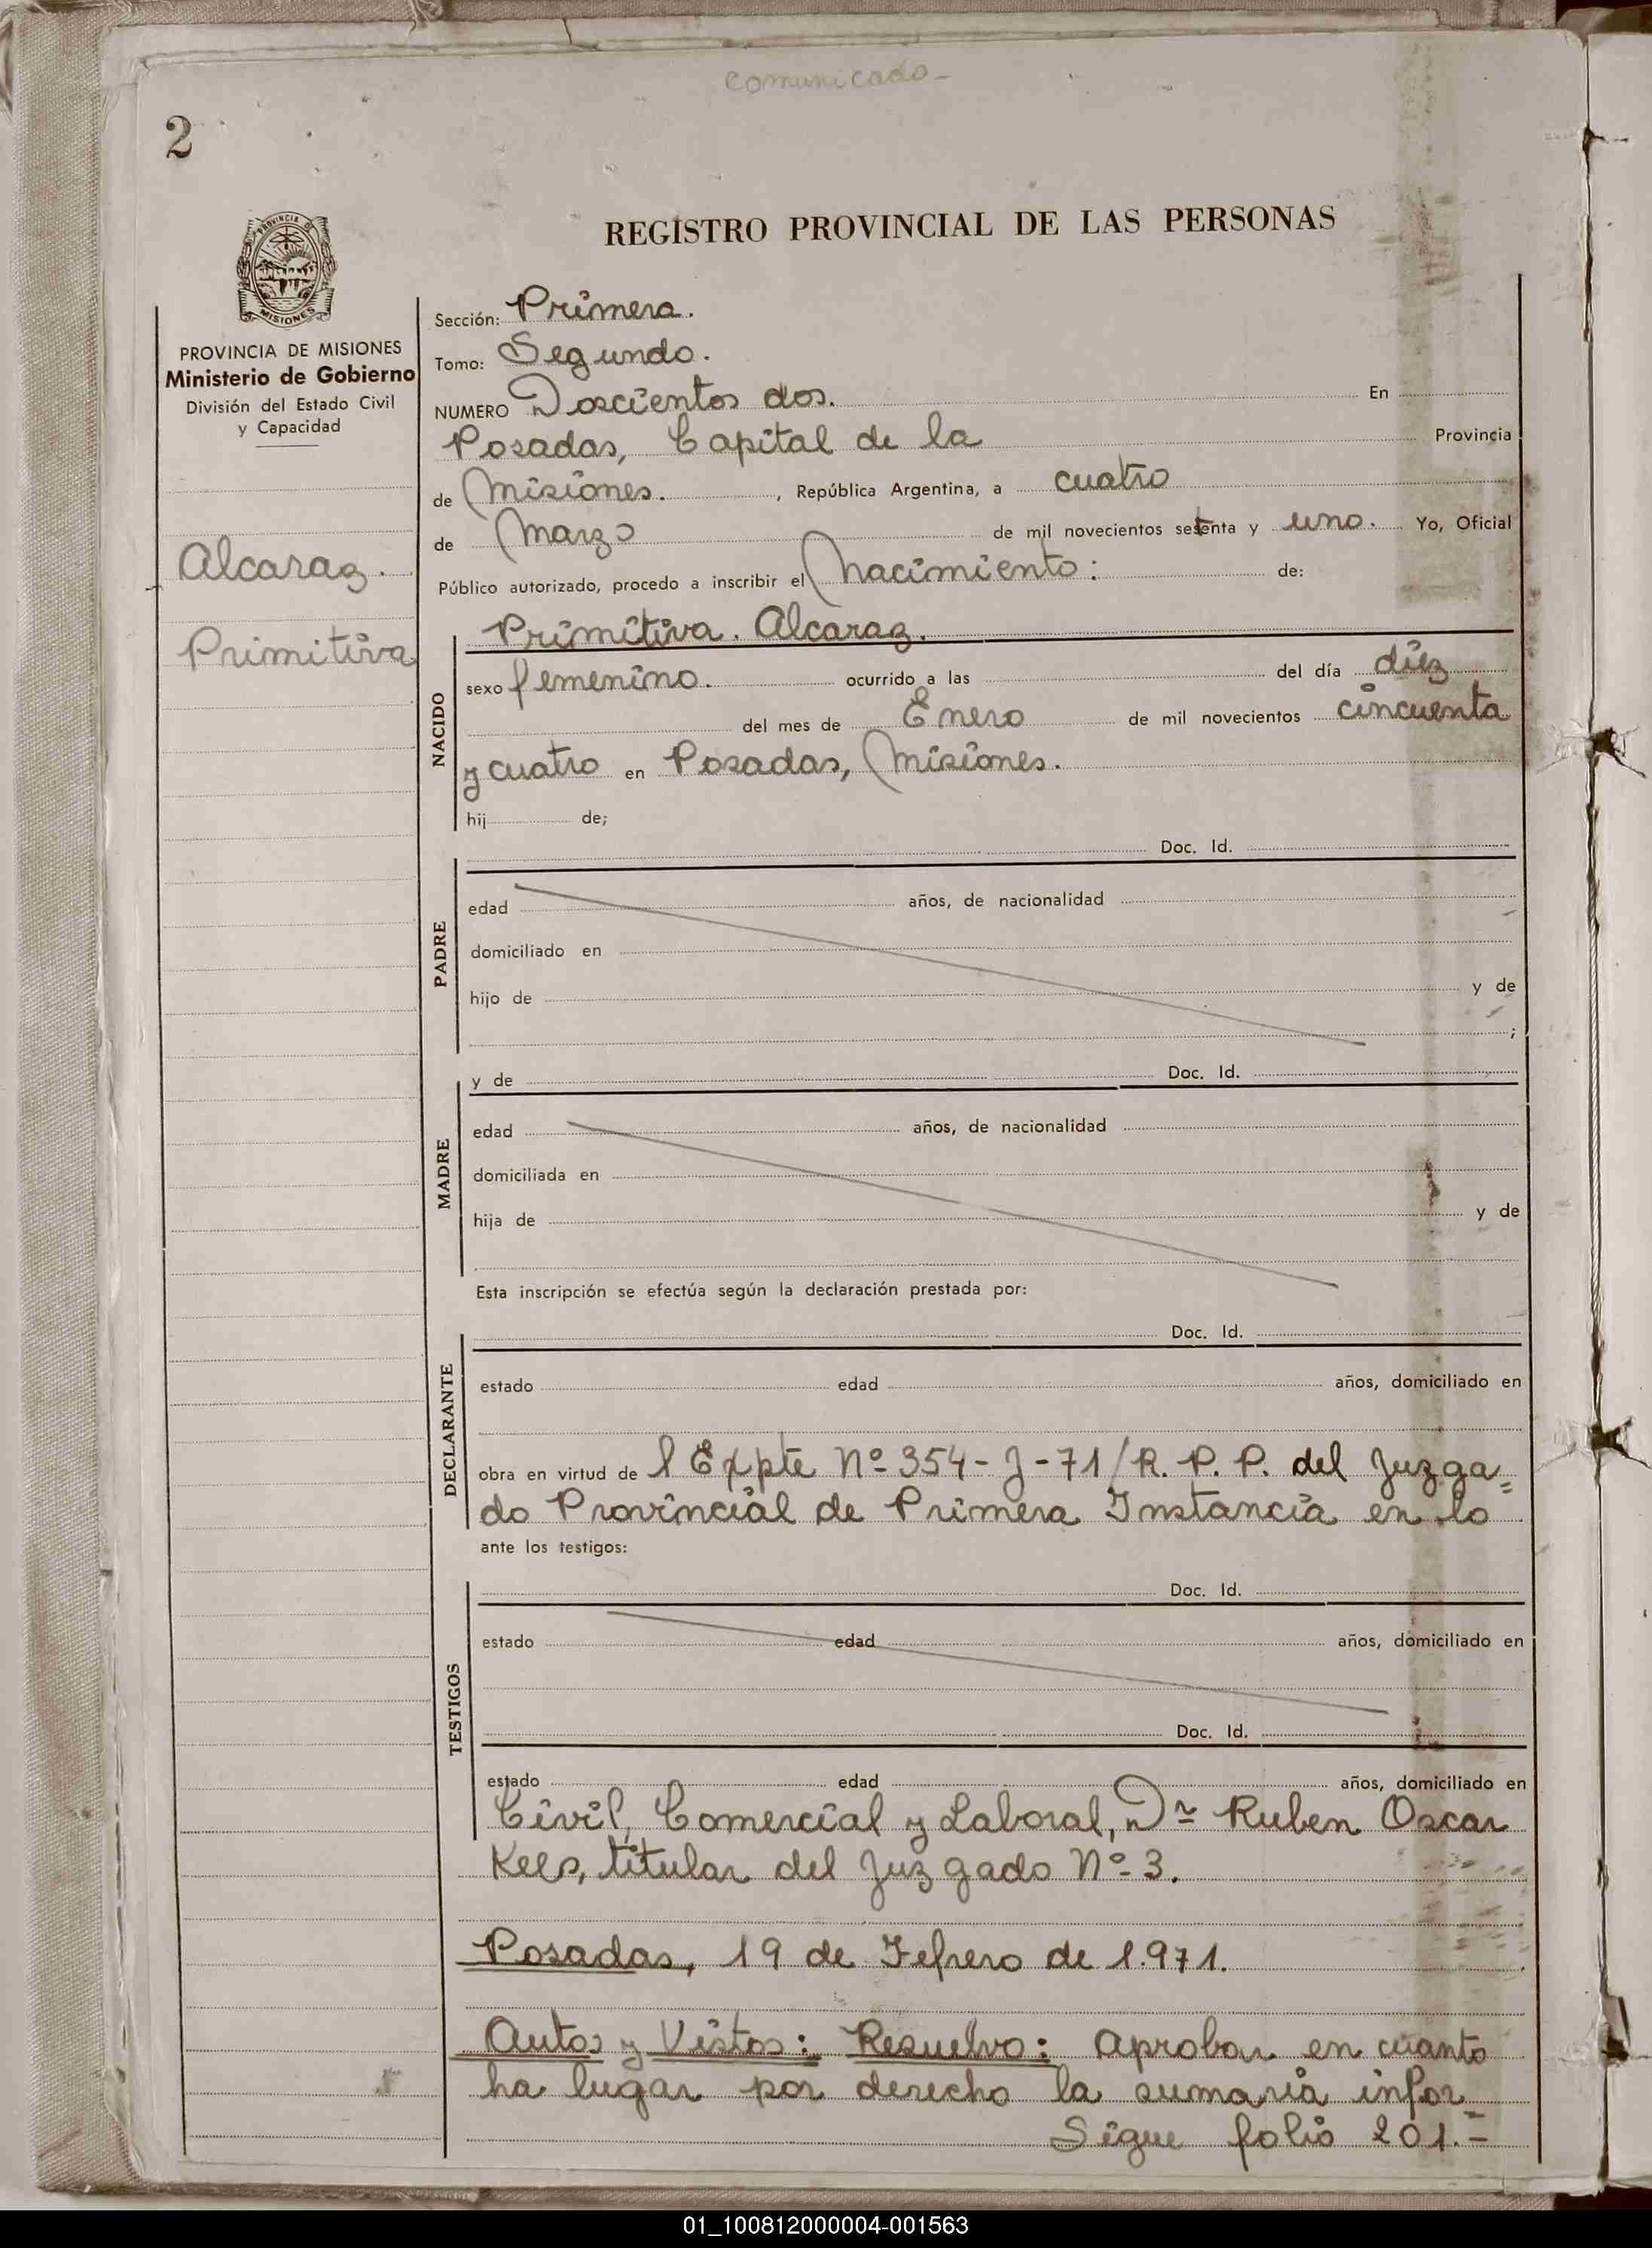 comunicado-
2
REGISTRO PROVINCIAL DE LAS PERSONAS
PROVINCIA
MISIONES
PROVINCIA DE MISIONES
Ministerio de Gobierno
División del Estado Civil
y Capacidad
Alcaraz.
Primitiva
Sección: Primera.
Tomo: Segundo.
NUMERO Doscientos dos. En
Posadas, Capital de la Provincia
de Misiones. , República Argentina, a cuatro
de Marzo de mil novecientos setenta y uno. Yo, Oficial
Público autorizado, procedo a inscribir el Nacimiento: de:
Primitiva. Alcaraz.
NACIDO
sexo femenino. ocurrido a las del día diez
del mes de Enero de mil novecientos cincuenta
y cuatro en Posadas, Misiones.
hij de;
Doc. Id.
PADRE
edad años, de nacionalidad
domiciliado en
hijo de y de
;
y de Doc. Id.
MADRE
edad años, de nacionalidad
domiciliada en
hija de y de
Esta inscripción se efectúa según la declaración prestada por:
Doc. Id.
DECLARANTE
estado edad años, domiciliado en
obra en virtud de l Expte Nº 354-J-71/R. P. P. del Juzga=
do Provincial de Primera Instancia en lo
ante los testigos:
Doc. Id.
TESTIGOS
estado edad años, domiciliado en
Doc. Id.
estado edad años, domiciliado en
Civil, Comercial y Laboral, Dr Ruben Oscar
Kees, titular del Juzgado Nº 3.
Posadas, 19 de Febrero de 1.971.
Autos y Vistos: Resuelvo: Aprobar en cuanto
ha lugar por derecho la sumaria infor=
Sigue folio 201.=
01_100812000004-001563